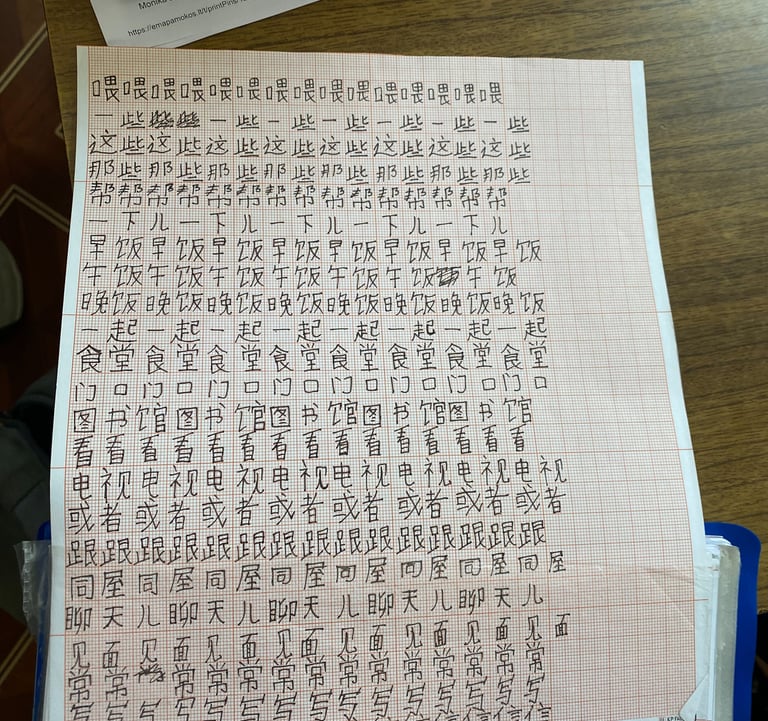 Monika
https://emapamokos.lt/t/printPins/
喂喂喂喂喂喂喂喂喂喂喂喂喂喂喂
一些 一些一些一些一些一些一些
这些这些这些这些这些这些这些这些
那些那些那些那些那些那些那些那些
帮帮帮帮帮帮帮帮帮帮帮帮帮帮帮
一下儿一下儿一下儿一下儿一下儿
早饭早饭早饭早饭早饭早饭早饭早饭
午饭午饭午饭午饭午饭午饭午饭
晚饭晚饭晚饭晚饭晚饭晚饭晚饭晚饭
一起一起一起一起一起一起一起一起
食堂食堂食堂食堂食堂食堂食堂食堂
门口门口门口门口门口门口门口门口
图书馆图书馆图书馆图书馆图书馆
看看看看看看看看看看看看看看看
电视电视电视电视电视电视电视电视
或者或者或者或者或者或者或者或者
跟跟跟跟跟跟跟跟跟跟跟跟跟跟跟
同屋同屋同屋同屋同屋同屋同屋同屋
聊天儿聊天儿聊天儿聊天儿聊天儿
见面见面见面见面见面见面见面见面
常常常常常常常常常常常常常常
写写写写写写写写写写写写写写写